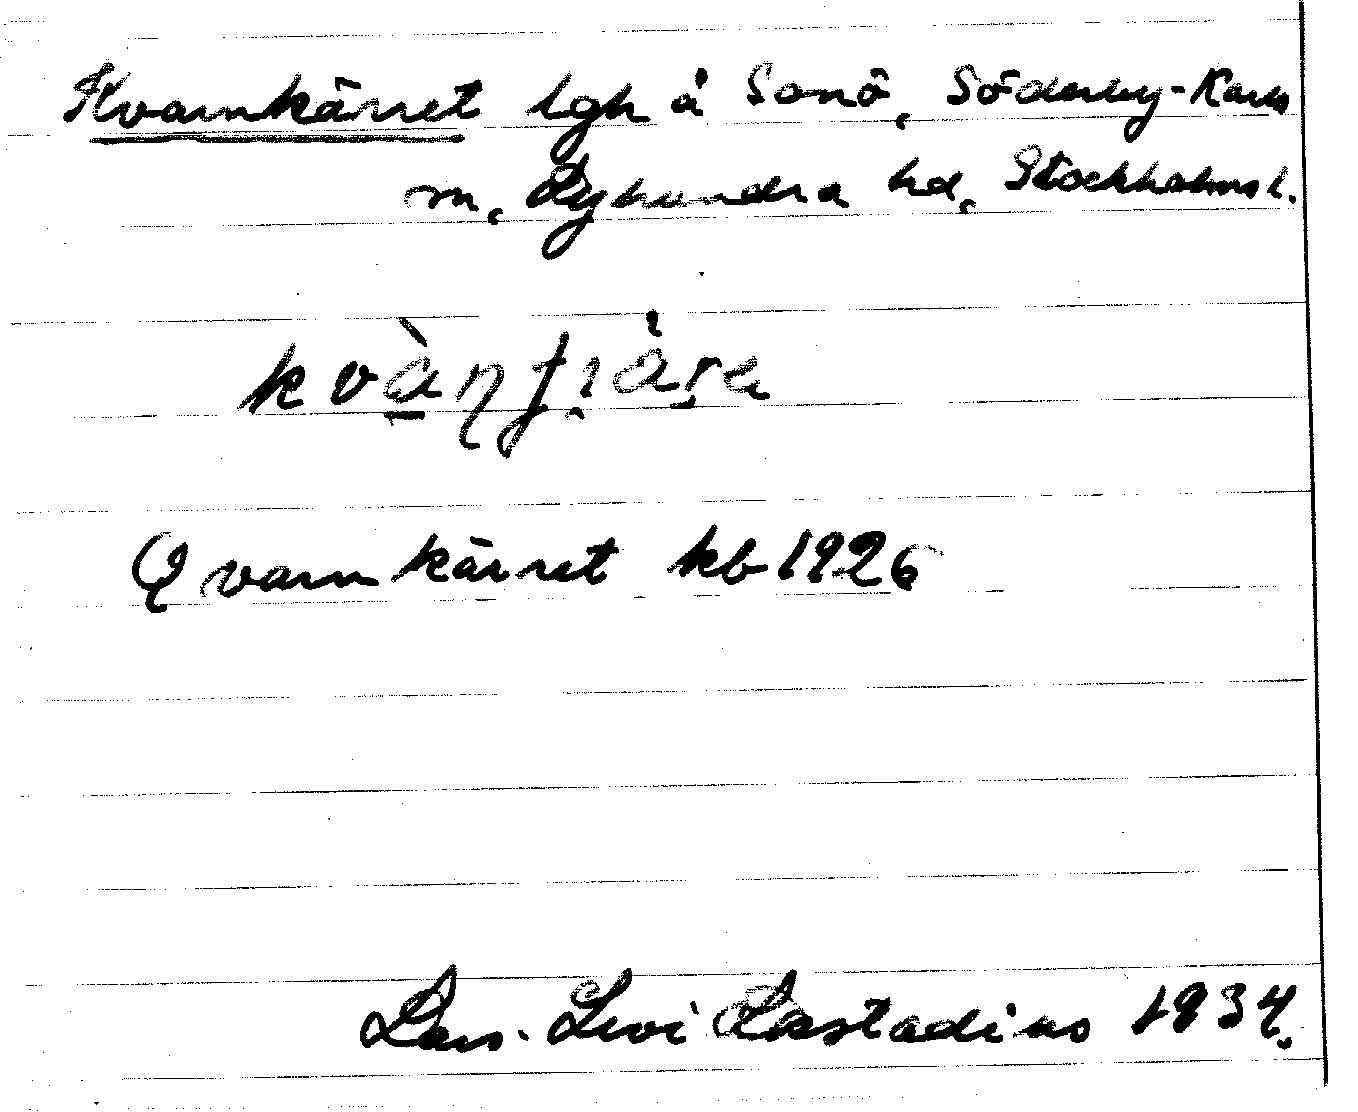 Kvarnkärret lgh å Sonö, Söderby-Karls
sn, Lyhundra hd, Stockholms l.
Qvarnkärret kb 1926
Lars-Levi Læstadius 1934.